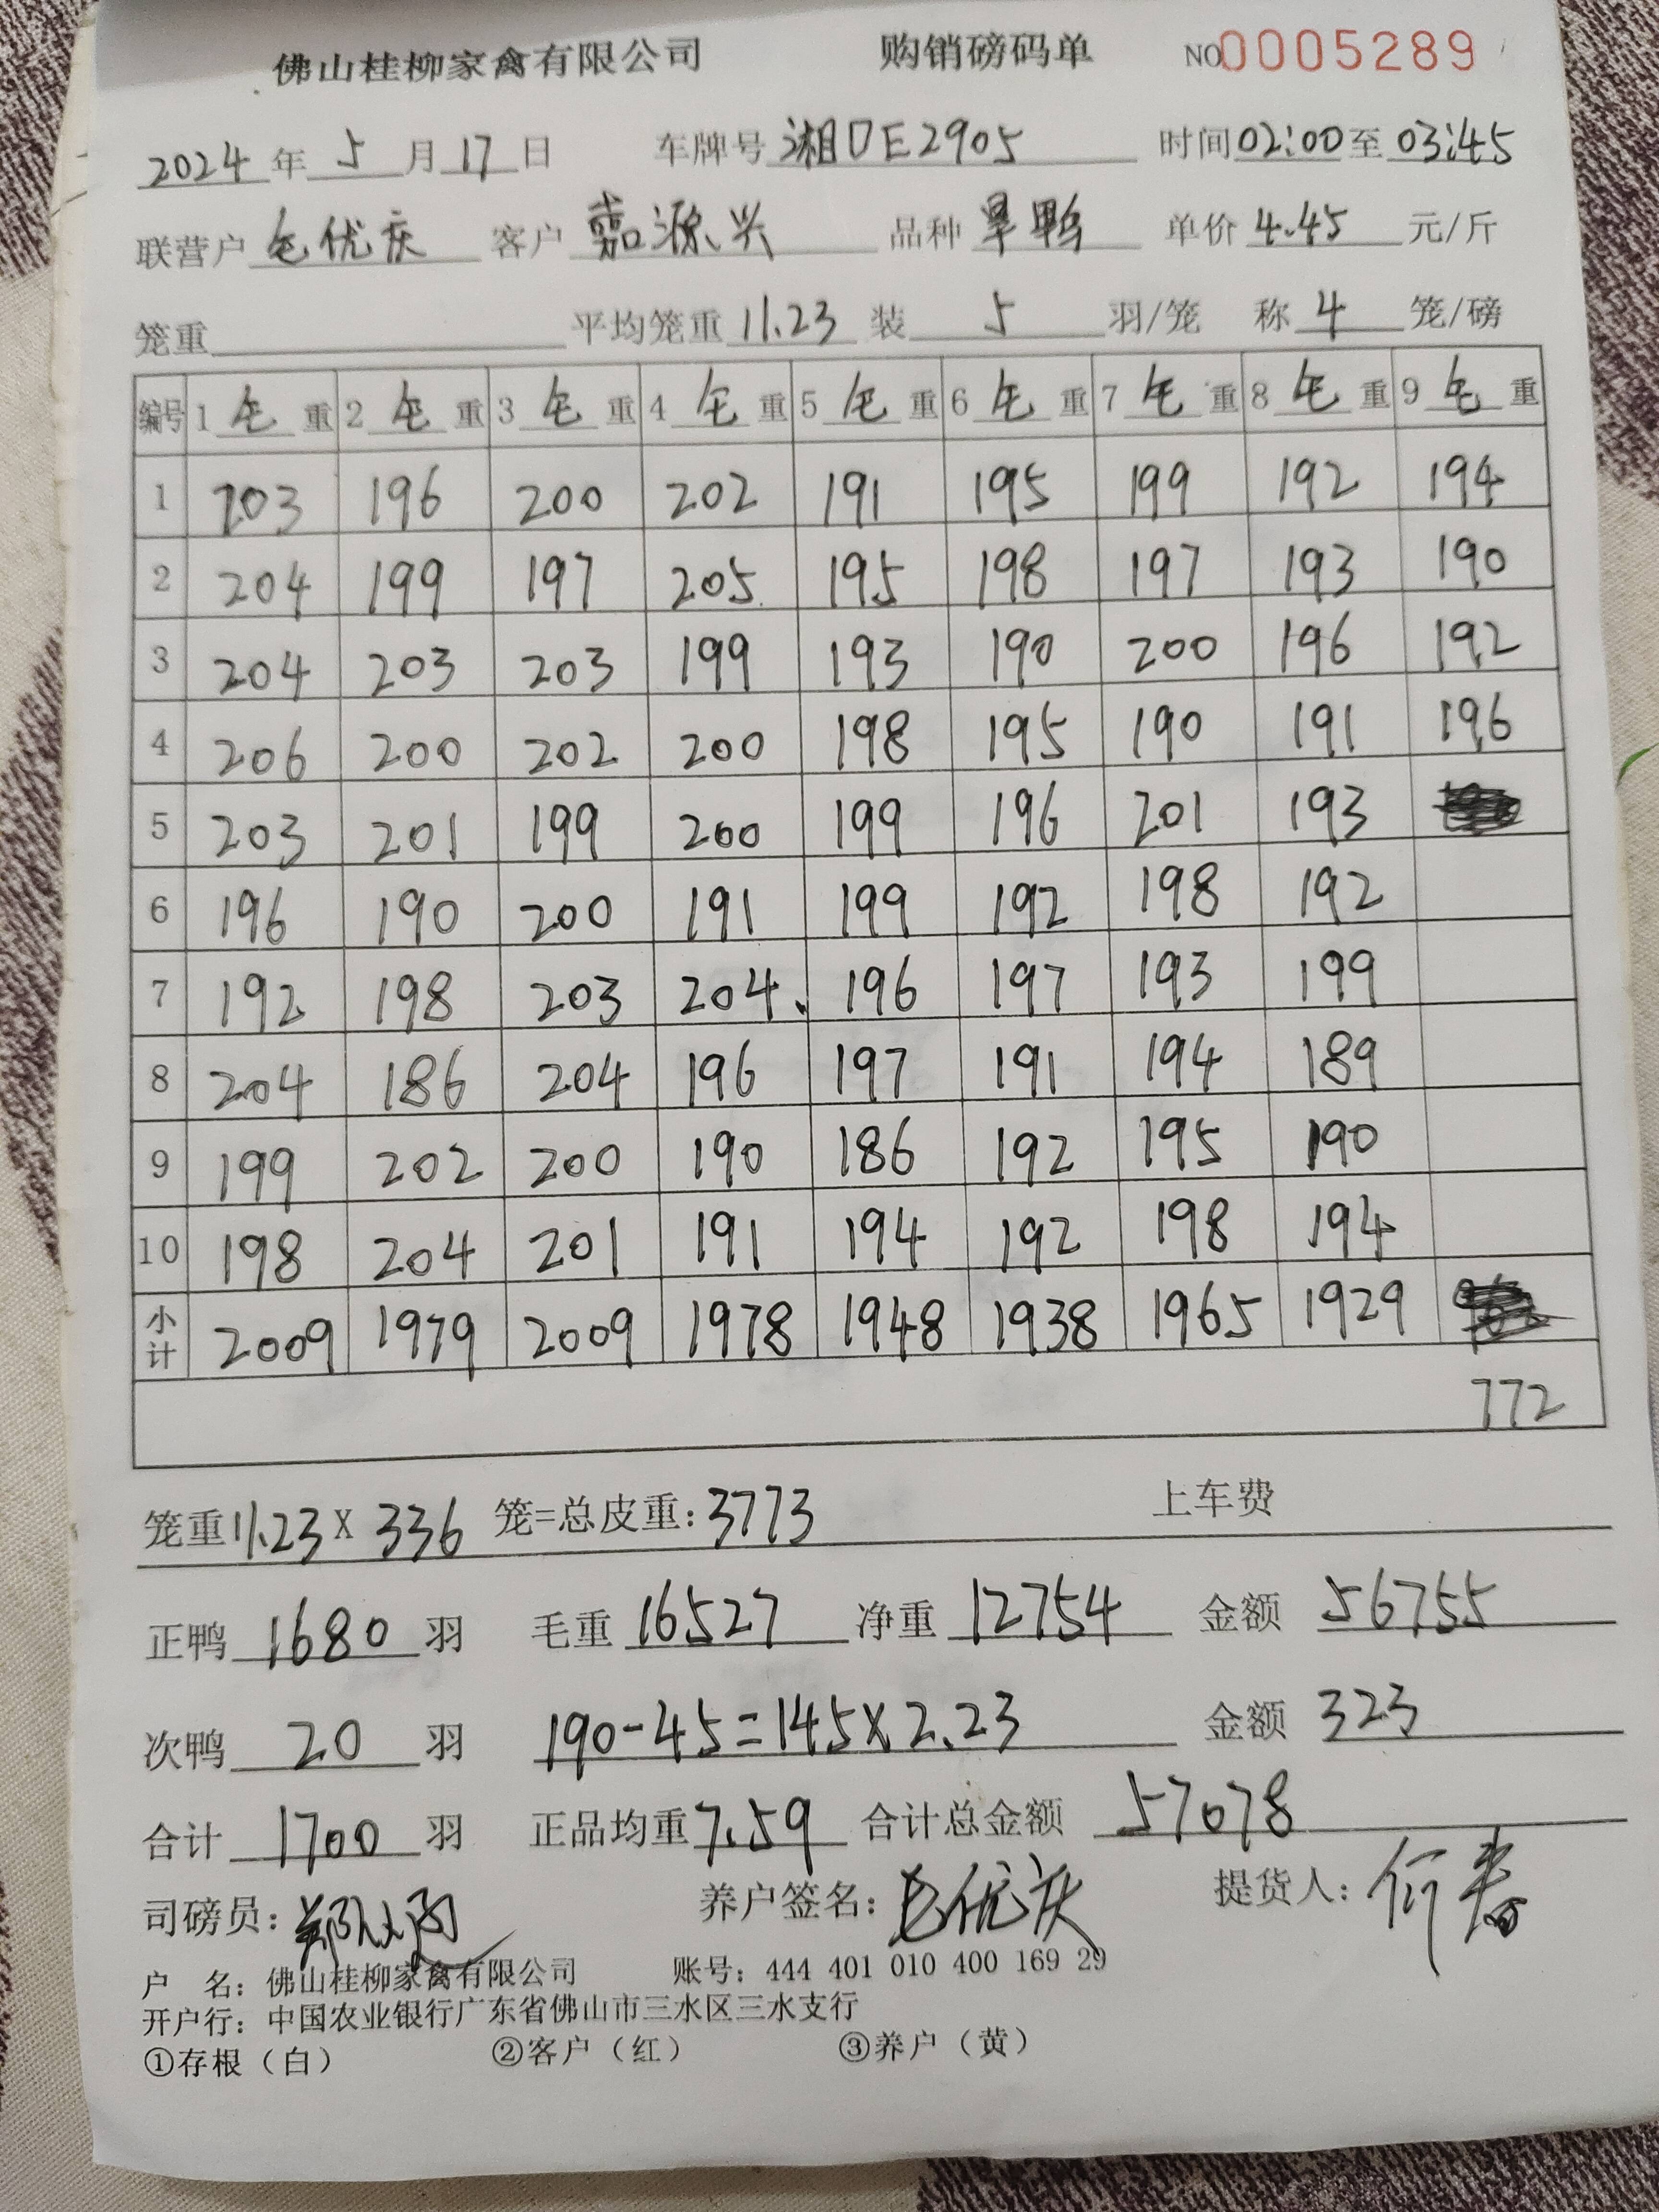 佛山桂柳家禽有限公司 购销磅码单 NO0005289
2024年5月17日 车牌号 湘DE2905 时间02:00至03:45
联营户 毛优庆 客户 嘉源兴 品种 旱鸭 单价4.45元/斤
笼重 平均笼重11.23 装5羽/笼 称4笼/磅
编号 1毛重 2毛重 3毛重 4毛重 5毛重 6毛重 7毛重 8毛重 9毛重
1 203 196 200 202 191 195 199 192 194
2 204 199 197 205 195 198 197 193 190
3 204 203 203 199 193 190 200 196 192
4 206 200 202 200 198 195 190 191 196
5 203 201 199 200 199 196 201 193
6 196 190 200 191 199 192 198 192
7 192 198 203 204 196 197 193 199
8 204 186 204 196 197 191 194 189
9 199 202 200 190 186 192 195 190
10 198 204 201 191 194 192 198 194
小计 2009 1979 2009 1978 1948 1938 1965 1929
772
笼重11.23X336笼=总皮重:3773 上车费
正鸭1680羽 毛重16527 净重12754 金额56755
次鸭20羽 190-45=145X2.23 金额323
合计1700羽 正品均重7.59 合计总金额57078
司磅员: 养户签名:毛优庆 提货人:
户 名: 佛山桂柳家禽有限公司 账号: 444 401 010 400 169 29
开户行: 中国农业银行广东省佛山市三水区三水支行
①存根（白） ②客户（红） ③养户（黄）